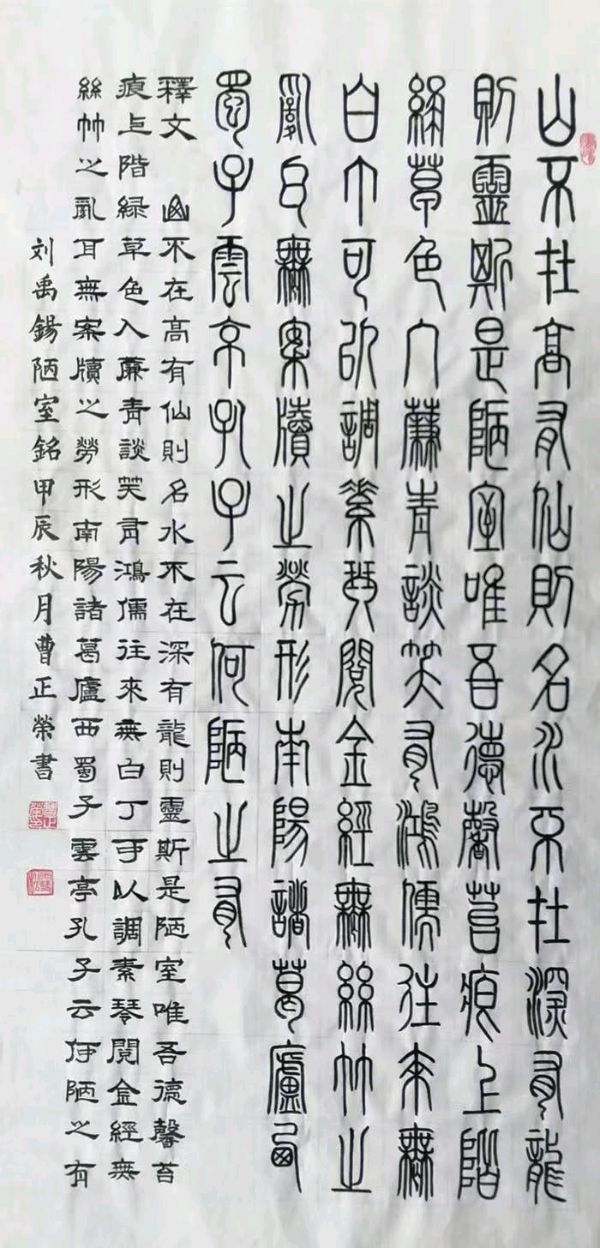 山不在高有仙則名水不在深有龍
則靈斯是陋室唯吾德馨苔痕上階
綠草色入簾青談笑有鴻儒往來無
白丁可以調素琴閱金經無絲竹之
亂耳無案牘之勞形南陽諸葛廬西
蜀子雲亭孔子云何陋之有
釋文 山不在高有仙則名水不在深有龍則靈斯是陋室唯吾德馨苔
痕上階綠草色入簾青談笑有鴻儒往來無白丁可以調素琴閱金經無
絲竹之亂耳無案牘之勞形南陽諸葛廬西蜀子雲亭孔子云何陋之有
刘禹錫陋室銘甲辰秋月曹正榮書